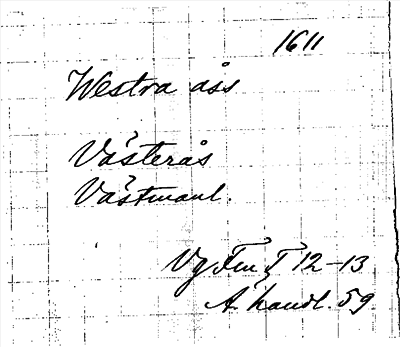 1611
Westra åss
Västerås
Västmanl.
Vg Fm T 12-13
A. handl. 59.